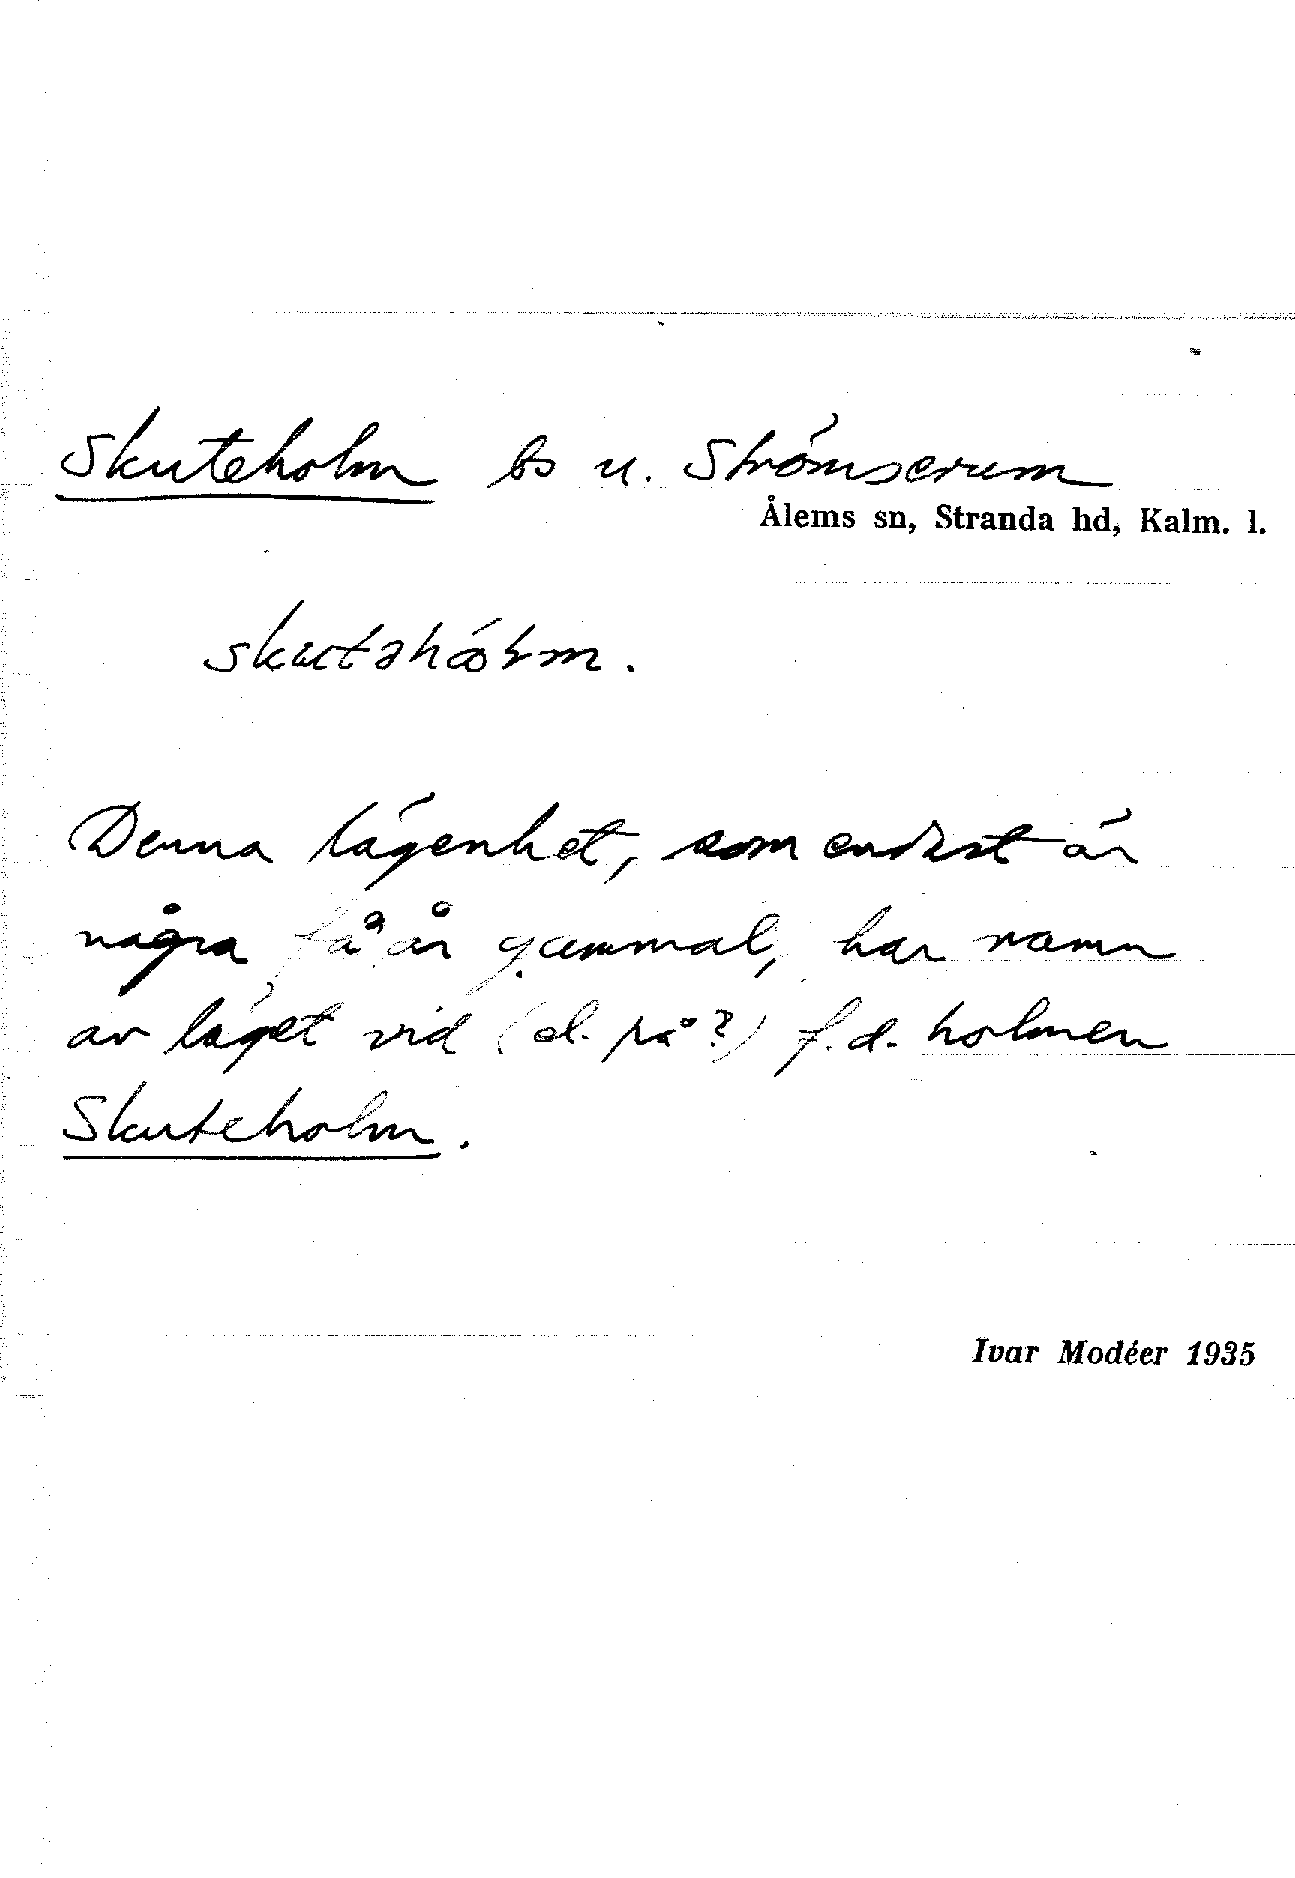 Skuteholm bs u. Strömserum
Ålems sn, Stranda hd, Kalm. l.
Denna lägenhet, som endast är
några få år gammal, har namn
av läget vid (el. på?) f.d. holmen
Skuteholm.
Ivar Modéer 1935